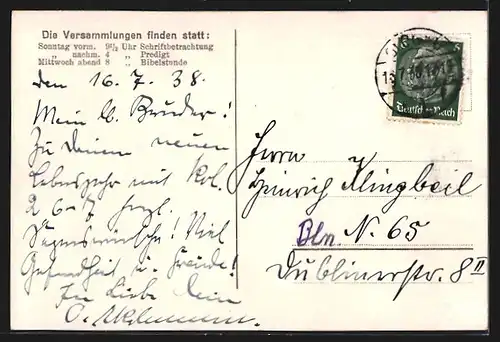 Die Versammlungen finden statt:
Sonntag vorm. 9½ Uhr Schriftbetrachtung
„ nachm. 4 „ Predigt
Mittwoch abend 8 „ Bibelstunde
den 16. 7. 38.
Mein lb. Bruder!
Zu Deinem neuen
Lebensjahr mit Kol.
2 6-7 herzl.
Segenswünsche! Viel
Gesundheit u. Freude!
In Liebe Dein
Deutsches Reich
Herrn
Heinrich Klingbeil
Bln. N. 65
Dublinerstr. 8 II